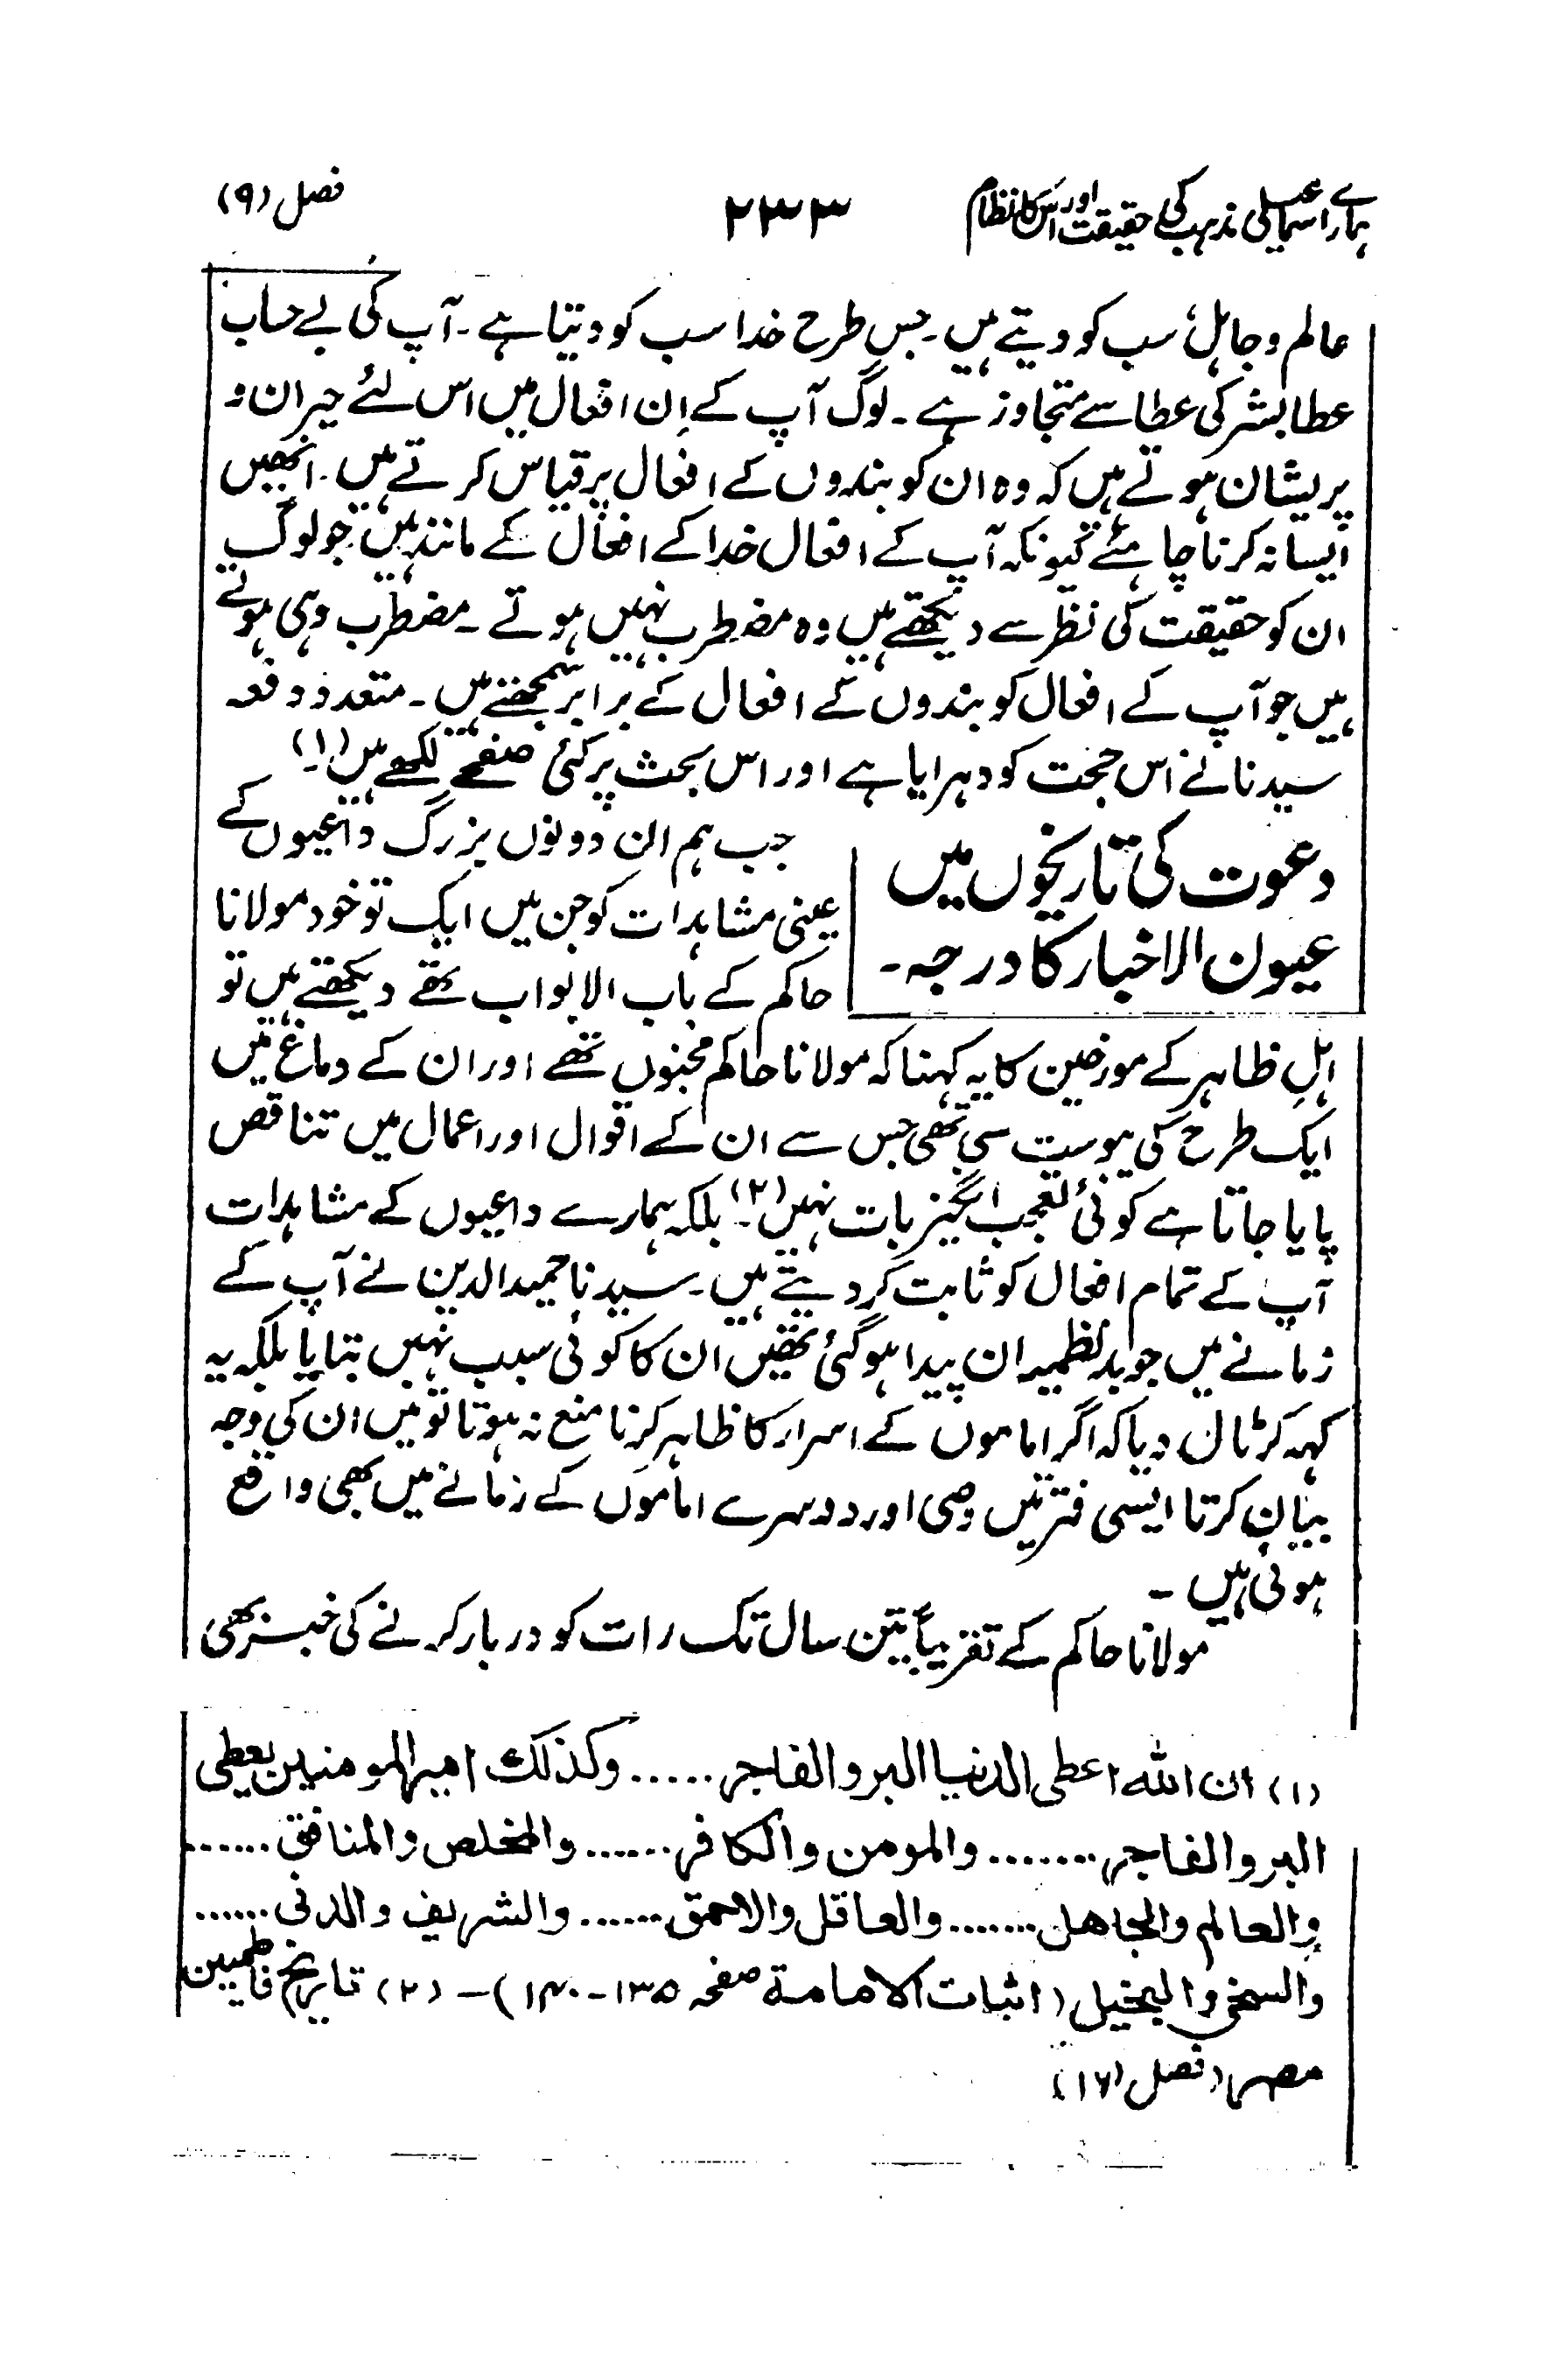 ہمارے اسماعیلی مذہب کی حقیقت اور اس کا نظام
۲۳۳
فصل (۹)
عالم و جاہل سب کو دیتے ہیں۔ جس طرح خدا سب کو دیتا ہے۔ آپ کی بے حساب
عطا بشر کی عطا سے متجاوز ہے۔ لوگ آپ کے اِن افعال میں اس لئے حیران و
پریشان ہوتے ہیں کہ وہ ان کو بندوں کے افعال پر قیاس کرتے ہیں۔ انھیں
ایسا نہ کرنا چاہئے کیونکہ آپ کے افعال خدا کے افعال کے مانند ہیں جو لوگ
ان کو حقیقت کی نظر سے دیکھتے ہیں وہ مضطرب نہیں ہوتے۔ مضطرب وہی ہوتے
ہیں جو آپ کے افعال کو بندوں کے افعال کے برابر سمجھتے ہیں۔ متعدد دفعہ
سیدنا نے اس حجت کو دہرایا ہے اور اس بحث پر کئی صفحے لکھے ہیں (۱)۔
دعوت کی تاریخوں میں
عیون الاخبار کا درجہ۔
جب ہم ان دونوں بزرگ داعیوں کے
عینی مشاہدات کو جن میں ایک تو خود مولانا
حاکم کے باب الابواب تھے دیکھتے ہیں تو
اہلِ ظاہر کے مورخین کا یہ کہنا کہ مولانا حاکم مجنوں تھے اور ان کے دماغ میں
ایک طرح کی یبوست سی تھی جس سے ان کے اقوال اور اعمال میں تناقص
پایا جاتا ہے کوئی تعجب انگیز بات نہیں (۲)۔ بلکہ ہمارے داعیوں کے مشاہدات
آپ کے تمام افعال کو ثابت کر دیتے ہیں۔ سیدنا حمید الدین نے آپ کے
زمانے میں جو بدنظمیاں پیدا ہو گئی تھیں ان کا کوئی سبب نہیں بتایا بلکہ یہ
کہہ کر ٹال دیا کہ اگر اماموں کے اسرار کا ظاہر کرنا منع نہ ہوتا تو میں ان کی وجہ
بیان کرتا ایسی فترتیں وصی اور دوسرے اماموں کے زمانے میں بھی واقع
ہوئی ہیں۔
مولانا حاکم کے تقریباً تین سال تک رات کو دربار کرنے کی خبر بھی
(۱) ان اللہ اعطی الدنیا البر والفاجر ...... وکذلک امیر المومنین یعطی
البر والفاجر ....... والمومن والکافر ....... والمخلص والمنافق ......
والعالم والجاهل ....... والعاقل والاحمق ....... والشریف والدنی ......
والسخی والبخیل (اثبات الامامة صفحہ ۱۳۵-۱۴۰)۔ (۲) تاریخ فاطمیین
مصر (فصل ۱۶)